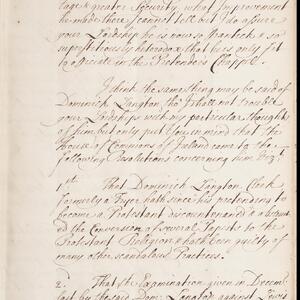 tage & greater Security, what Improvement
he made there I cannot tell but I do assure
your Lordship he is now so frantick & so
superstitiously heterodox that he is only fit
to officiate in the Pretenders Chappel.
I think the same thing may be said of
Dominick Langton, tho I shall not trouble
your Lordships with my particular thoughts
of him but only put you in mind that the
House of Commons of Ireland came to the
following Resolutions concerning him Vizt.
1st That Dominick Langton Clerk
formerly a Fryer hath since his pretending to
become a Protestant discountenanced &
the Conversion of several Papists to the
Protestant Religion & hath been guilty of
many other scandalous Practices.
2d. That the Examination given in Decemb
last by the said Dom: Langton against